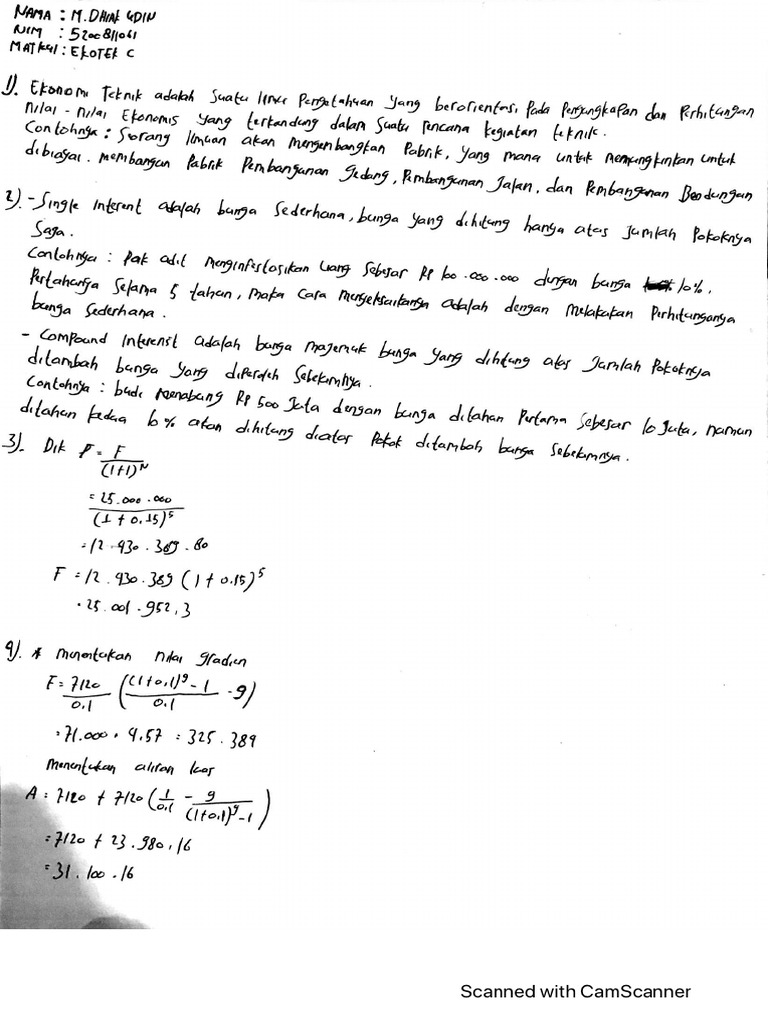 NAMA : M. DHIAK UDIN
NIM : 5200811061
MATKUL : EKOTEK C
1). Ekonomi Teknik adalah suatu ilmu Pengetahuan yang berorientasi Pada Pengungkapan dan Perhitungan
nilai - nilai Ekonomis yang terkandung dalam suatu rencana kegiatan teknik.
Contohnya : Seorang ilmuan akan mengembangkan Pabrik, yang mana untuk memungkinkan untuk
dibiayai. membangun Pabrik Pembangunan Gedung, Pembangunan Jalan, dan Pembangunan Bendungan
2). - Single Interent adalah bunga Sederhana, bunga yang dihitung hanya atas Jumlah Pokoknya
Saja.
Contohnya : Pak adit menginfestosikan uang Sebesar Rp 100.000.000 dengan bunga 10%,
Pertahunya Selama 5 tahun, maka cara menyelsaikanya adalah dengan melakukan Perhitunganya
bunga Sederhana.
- Compound Interenst adalah bunga majemuk bunga yang dihitung atas Jumlah Pokoknya
ditambah bunga yang diperoleh Sebelumnya.
Contohnya : budi menabung Rp 500 Juta dengan bunga ditahun Pertama Sebesar 10 Juta, namun
ditahun kedua 10% akan dihitung diatas Pokok ditambah bunga Sebelumnya.
3). Dik P = F
(1+1)^N
= 25.000.000
(1 + 0.15)^5
= 12.430.389.80
F = 12.430.389 (1 + 0.15)^5
= 25.001.952,3
4). * menentukan nilai gradien
F = 7120 ((1+0,1)^9 - 1 - 9)
0,1 0.1
= 71.000 . 4,57 = 325.389
Menentukan aliran kas
A = 7120 + 7120 (1 - 9)
0.1 (1+0,1)^9 - 1
= 7120 + 23.980,16
= 31.100.16
Scanned with CamScanner